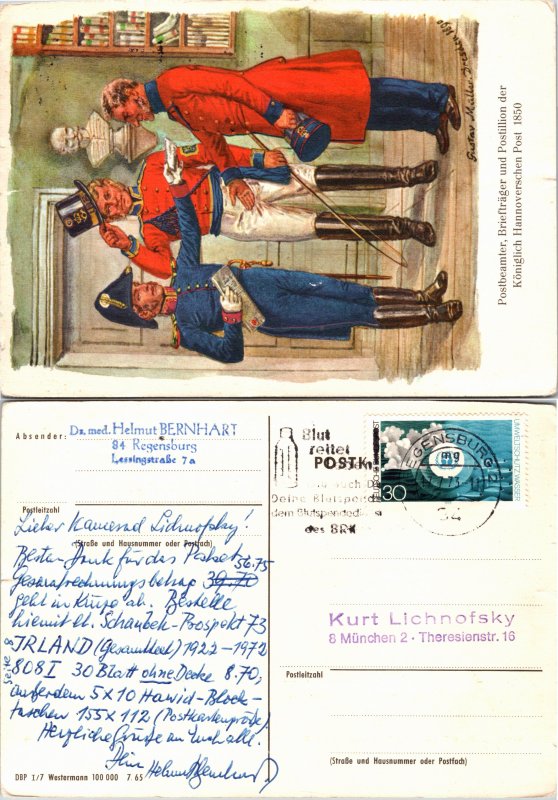 Gustav Müller Dresden 1890
Postbeamter, Briefträger und Postillion der
Königlich Hannoverschen Post 1850
Absender:
Dr. med. Helmut BERNHART
84 Regensburg
Lessingstraße 7 a
Postleitzahl
(Straße und Hausnummer oder Postfach)
Lieber Kamerad Lichnofsky!
Besten Dank für das Paket.
56.75
Gesamtrechnungsbetrag 39.70
geht in Kürze ab. Bestelle
hiemit lt. Schaubek-Prospekt 73
Seite 8
IRLAND (Gesamtheft) 1922-1972
808 I 30 Blatt ohne Decke 8.70,
außerdem 5 x 10 Hawid-Block-
taschen 155 x 112 (Postkartengröße)
Herzliche Grüße an Euch alle.
Ihr Helmut Bernhart
DBP I/7 Westermann 100 000 7 65
Blut
rettet
POSTK
Deine Blutspende
dem Blutspendedienst
des BRK
REGENSBURG 2
mg
73
84
30
UMWELTSCHUTZ WASSER
Kurt Lichnofsky
8 München 2 - Theresienstr. 16
Postleitzahl
(Straße und Hausnummer oder Postfach)